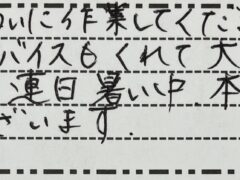 ついに作業してくださ
バイスもくれて大
連日暑い中、本
ざいます.